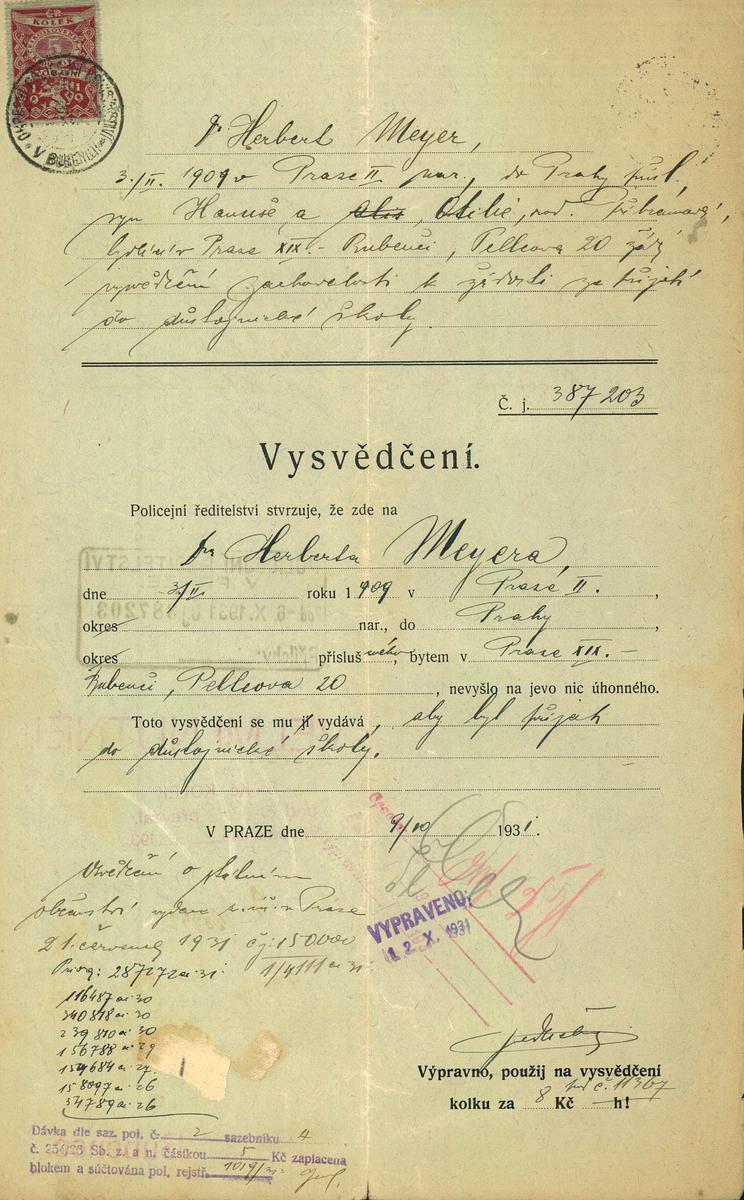 ČR
KOLEK
5
V BUBENČI
Dr Herbert Meyer,
3./II. 1909 v Praze II nar., do Prahy přísl.,
syn Hanuše a Otilie, roz. Příbramové,
bydlící v Praze XIX. - Bubenči, Pelléova 20 žádá
vysvědčení zachovalosti k žádosti za přijetí
do důstojnické školy.
Č. j. 387203
Vysvědčení.
Policejní ředitelství stvrzuje, že zde na
Dra Herberta Meyera,
dne 3./II. roku 1909 v Praze II.,
okres nar., do Prahy,
okres příslušného, bytem v Praze XIX. -
Bubenči, Pelléova 20, nevyšlo na jevo nic úhonného.
Toto vysvědčení se mu jí vydává, aby byl přijat
do důstojnické školy.
V PRAZE dne 9/10 1931.
Osvědčení o státním
občanství vydané z. ú. v Praze
21. července 1931 čj: 150000
1/4111 ai 31
Prior: 287272 ai 31
116487 ai 30
340878 ai 30
239810 ai 30
156788 ai 29
154684 ai 27
158097 ai 26
54789 ai 26
VYPRAVENO:
12. X. 1931
Výpravno, použij na vysvědčení
kolku za 8 Kč h!
pod č. 11367
Dávka dle saz. pol. č. 2 sazebníku 4
č. 254/26 Sb. z. a n. částkou 5 Kč zaplacena
blokem a súčtována pol. rejstř. 1019/31